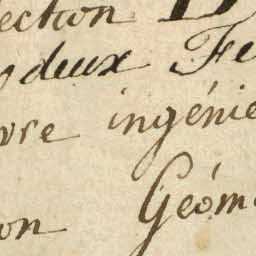 lection D
deux Fe
vre ingénie
on Géom